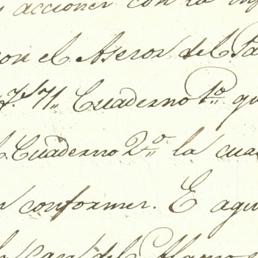 acciones con la
con el Asesor del
71,, Cuaderno 1º,, qu
Cuaderno 2º,, la cua
conformes. E aqui
del